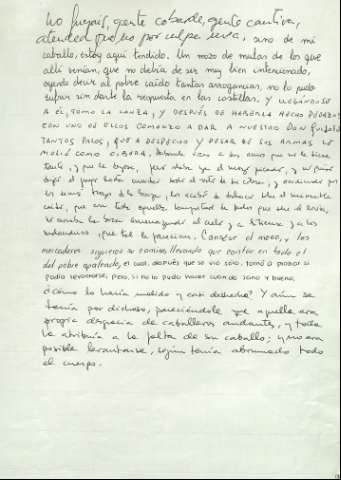 no fuyais, gente cobarde, gente cautiva,
atended que no por culpa mía, sino de mi
caballo, estoy aquí tendido. Un mozo de mulas de los que
allí venían, que no debía de ser muy bien intencionado,
oyendo decir al pobre caído tantas arrogancias, no lo pudo
sufrir sin darle la respuesta en las costillas. Y LLEGANDOSE
A EL, TOMO LA LANZA, Y DESPUÉS DE HABERLA HECHO PEDAZOS
CON UNO DE ELLOS COMENZO A DAR A NUESTRO DON QUIJOTE
TANTOS PALOS, QUE A DESPECHO Y PESAR DE SUS ARMAS LE
MOLIÓ COMO CIBERA. Dábanle voces a sus amos que no le diese
tanto, y que le dejase, pero
el juego hasta
en
con toda aquella tempestad de palos que
amenazando al cielo y a la tierra, y a los
que tal le parecían. Cansose el mozo, y los
mercaderes siguieron su camino llevando que contar en todo él
del pobre apaleado, el cual, después que se vio solo, tornó a probar si
podía levantarse; pero si no lo pudo hacer cuando sano y bueno,
¿cómo lo haría molido y casi deshecho? Y aún se
tenía por dichoso, pareciéndole que aquella era
propia desgracia de caballeros andantes, y toda
la atribuía a la falta de su caballo; y no era
posible levantarse, según tenía abrumado todo
el cuerpo.